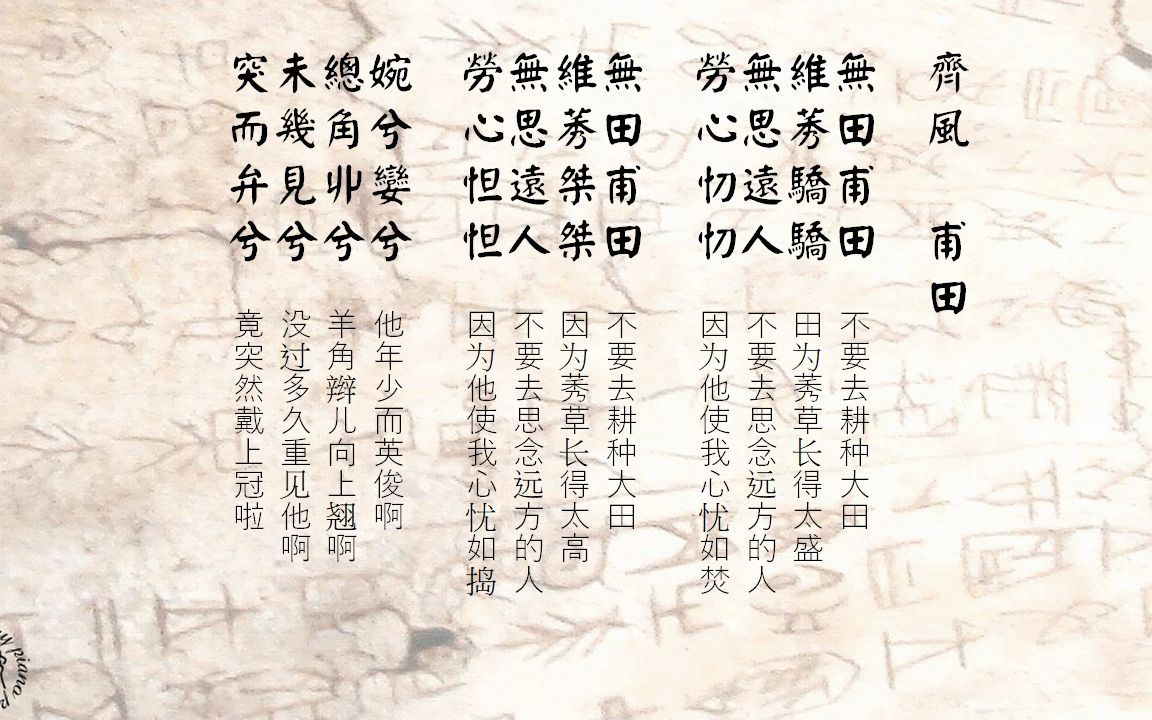 齊風 甫田
無田甫田
維莠驕驕
無思遠人
勞心忉忉
不要去耕种大田
田为莠草长得太盛
不要去思念远方的人
因为他使我心忧如焚
無田甫田
維莠桀桀
無思遠人
勞心怛怛
不要去耕种大田
因为莠草长得太高
不要去思念远方的人
因为他使我心忧如捣
婉兮孌兮
總角丱兮
未幾見兮
突而弁兮
他年少而英俊啊
羊角辫儿向上翘啊
没过多久重见他啊
竟突然戴上冠啦
piano